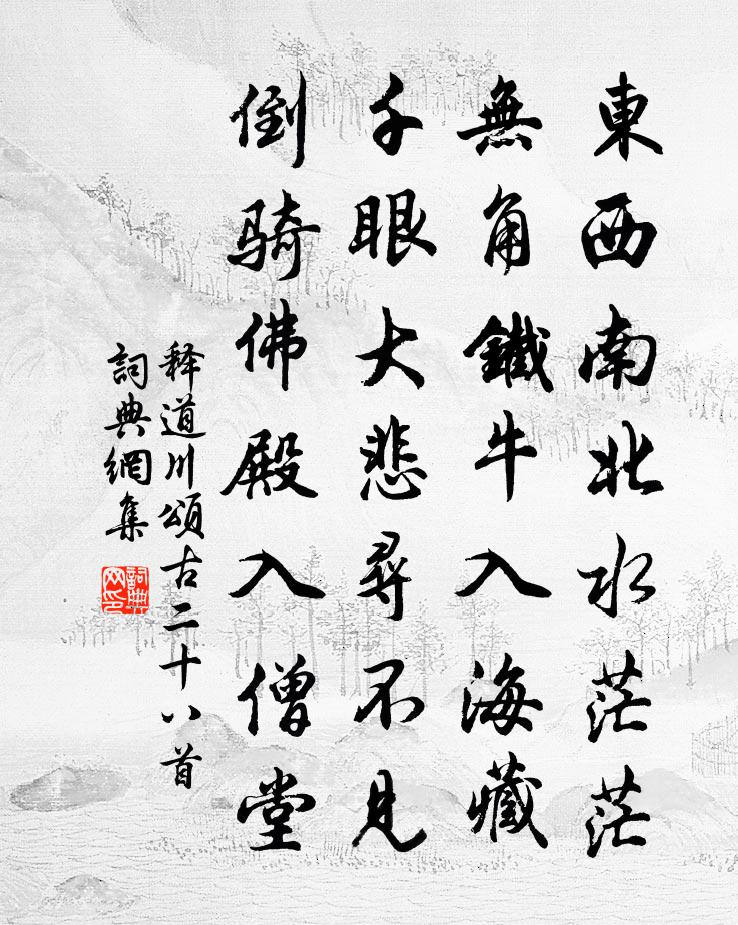 東西南北水茫茫
無角鐵牛入海藏
千眼大悲尋不見
倒騎佛殿入僧堂
释道川頌古二十八首
詞典網集
詞典
网印